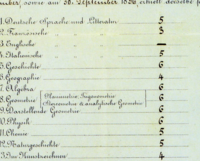 sowie am 18. September 1896
1. Deutsche Sprache und Litteratur 5
2. Französische 3
3. Englische —
4. Italienische 5
5. Geschichte 6
6. Geographie 4
7. Algebra 6
8. Geometrie { Planimetrie, Trigonometrie 6
Stereometrie & analytische Geometrie
9. Darstellende Geometrie 6
10. Physik 6
11. Chemie 5
12. Naturgeschichte 5
13. Im Kunstzeichnen 4